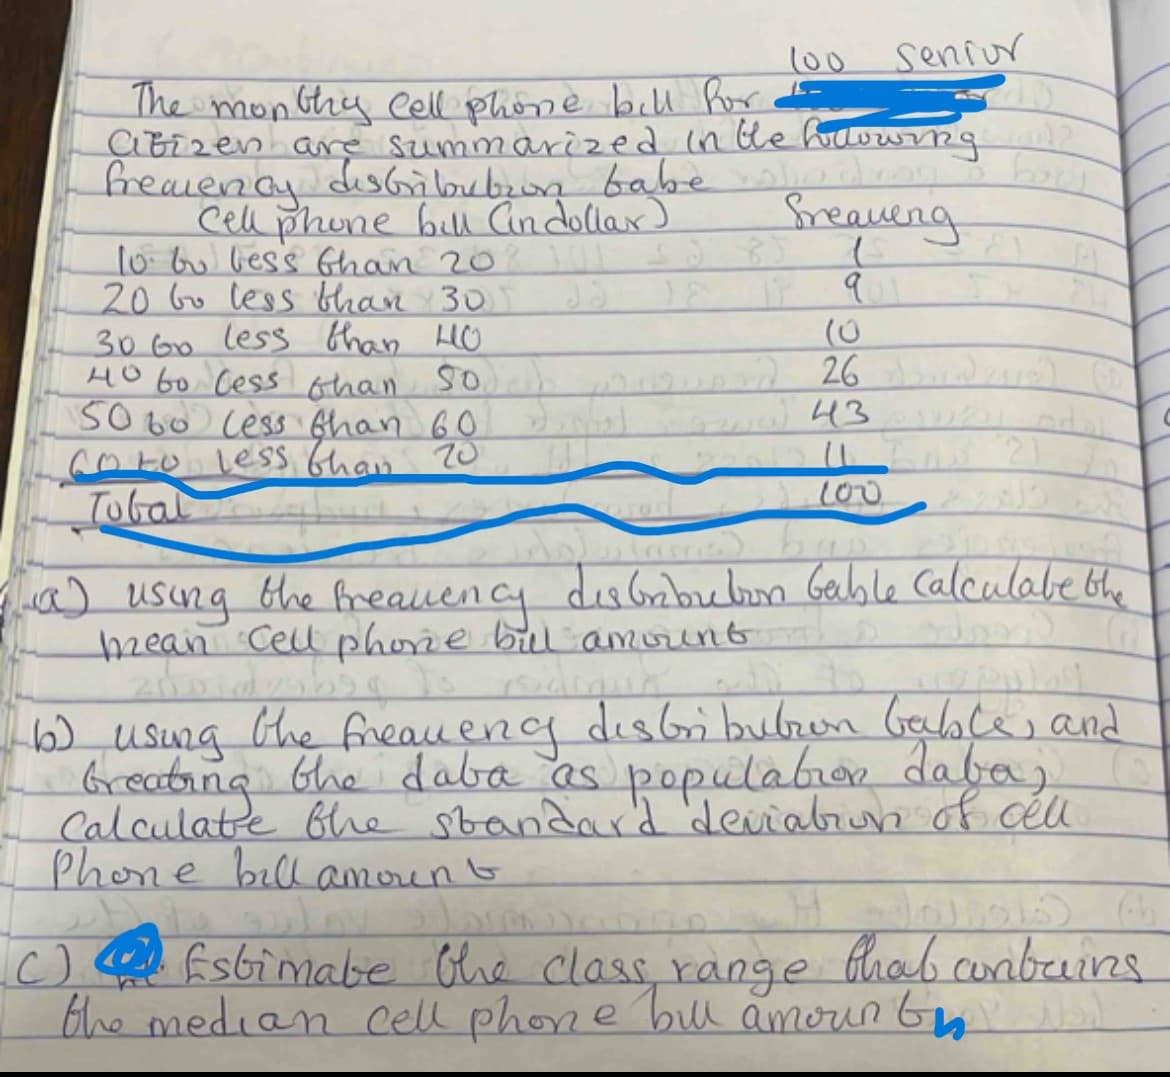 100 senior
The monthy cell phone bill for
Citizen are summarized in the following
freauency distribution tabe
Cell phone bill (in dollar) freaueng
10 to less than 20 1
20 to less than 30 9
30 to less than 40 10
40 to less than 50 26
50 to less than 60 43
60 to less than 70 11
Total 100
a) using the freauency distribution table Calculate the
mean cell phone bill amount
b) using the freauency distribution table, and
treating the data as population data,
Calculate the standard deviation of cell
Phone bill amount
c) Estimate the class range that contains
the median cell phone bill amount